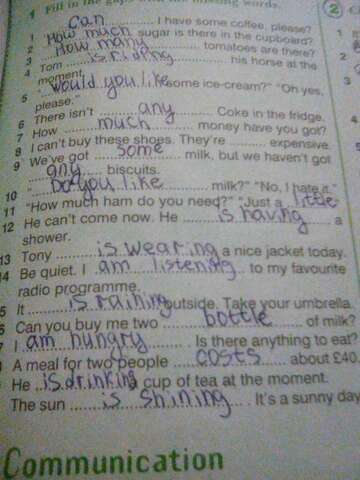 1 Fill in the gaps with the missing words.
1 Can I have some coffee, please?
2 How much sugar is there in the cupboard?
3 How many tomatoes are there?
4 Tom is riding his horse at the
moment.
5 "Would you like some ice-cream?" "Oh yes,
please."
6 There isn't any Coke in the fridge.
7 How much money have you got?
8 I can't buy these shoes. They're expensive.
9 We've got some milk, but we haven't got
any biscuits.
10 "Do you like milk?" "No, I hate it."
11 "How much ham do you need?" "Just a little
12 He can't come now. He is having a
shower.
13 Tony is wearing a nice jacket today.
14 Be quiet. I am listening to my favourite
radio programme.
5 It is raining outside. Take your umbrella
6 Can you buy me two bottle of milk?
7 I am hungry. Is there anything to eat?
8 A meal for two people costs about £40.
He is drinking cup of tea at the moment.
The sun is shining. It's a sunny day
Communication
2